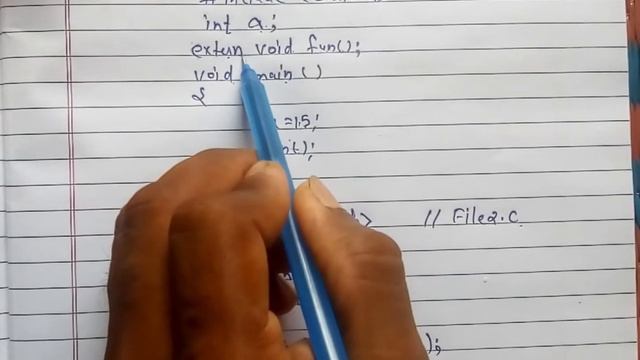 int a;
extern void fun();
void main()
{
=15;
);
> // File2.c
);